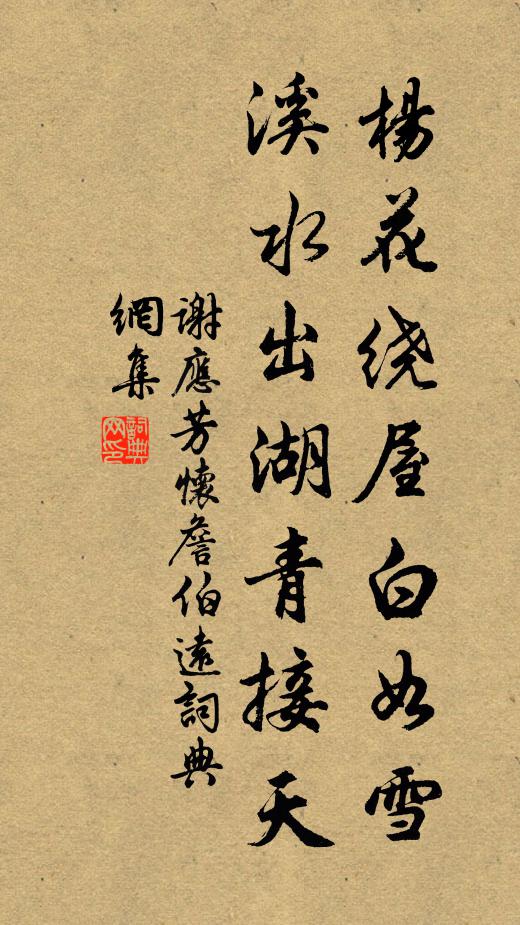 楊花绕屋白如雪
溪水出湖青接天
謝應芳懷詹伯遠詞典
網集
詞典
网印